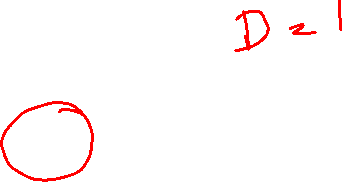 D = 1